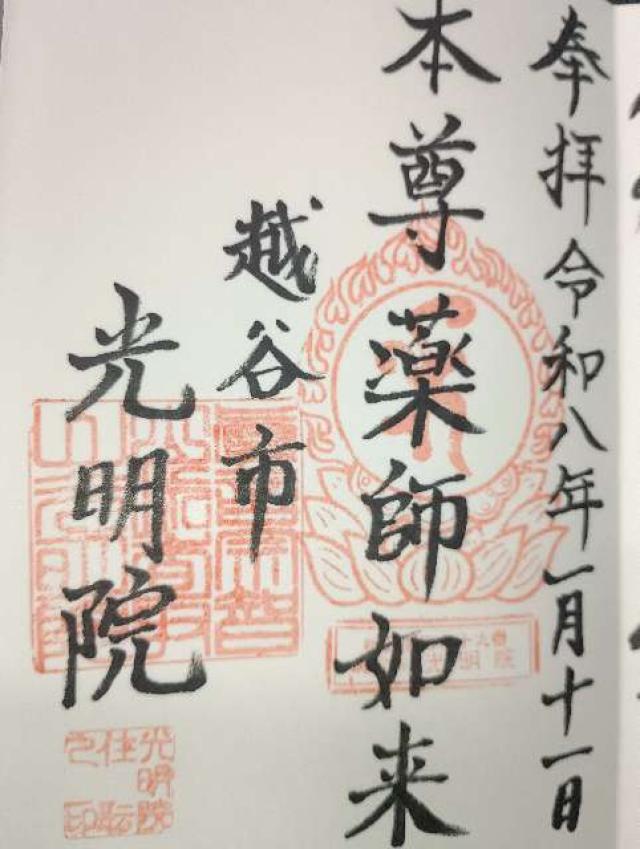 奉拝 令和八年一月十一日
本尊薬師如来
越谷市
光明院
光明院
住職
之印